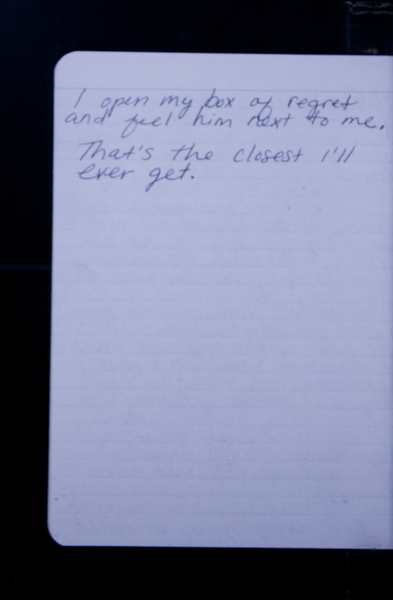 I open my box of regret
and feel him next to me.
That's the closest I'll
ever get.